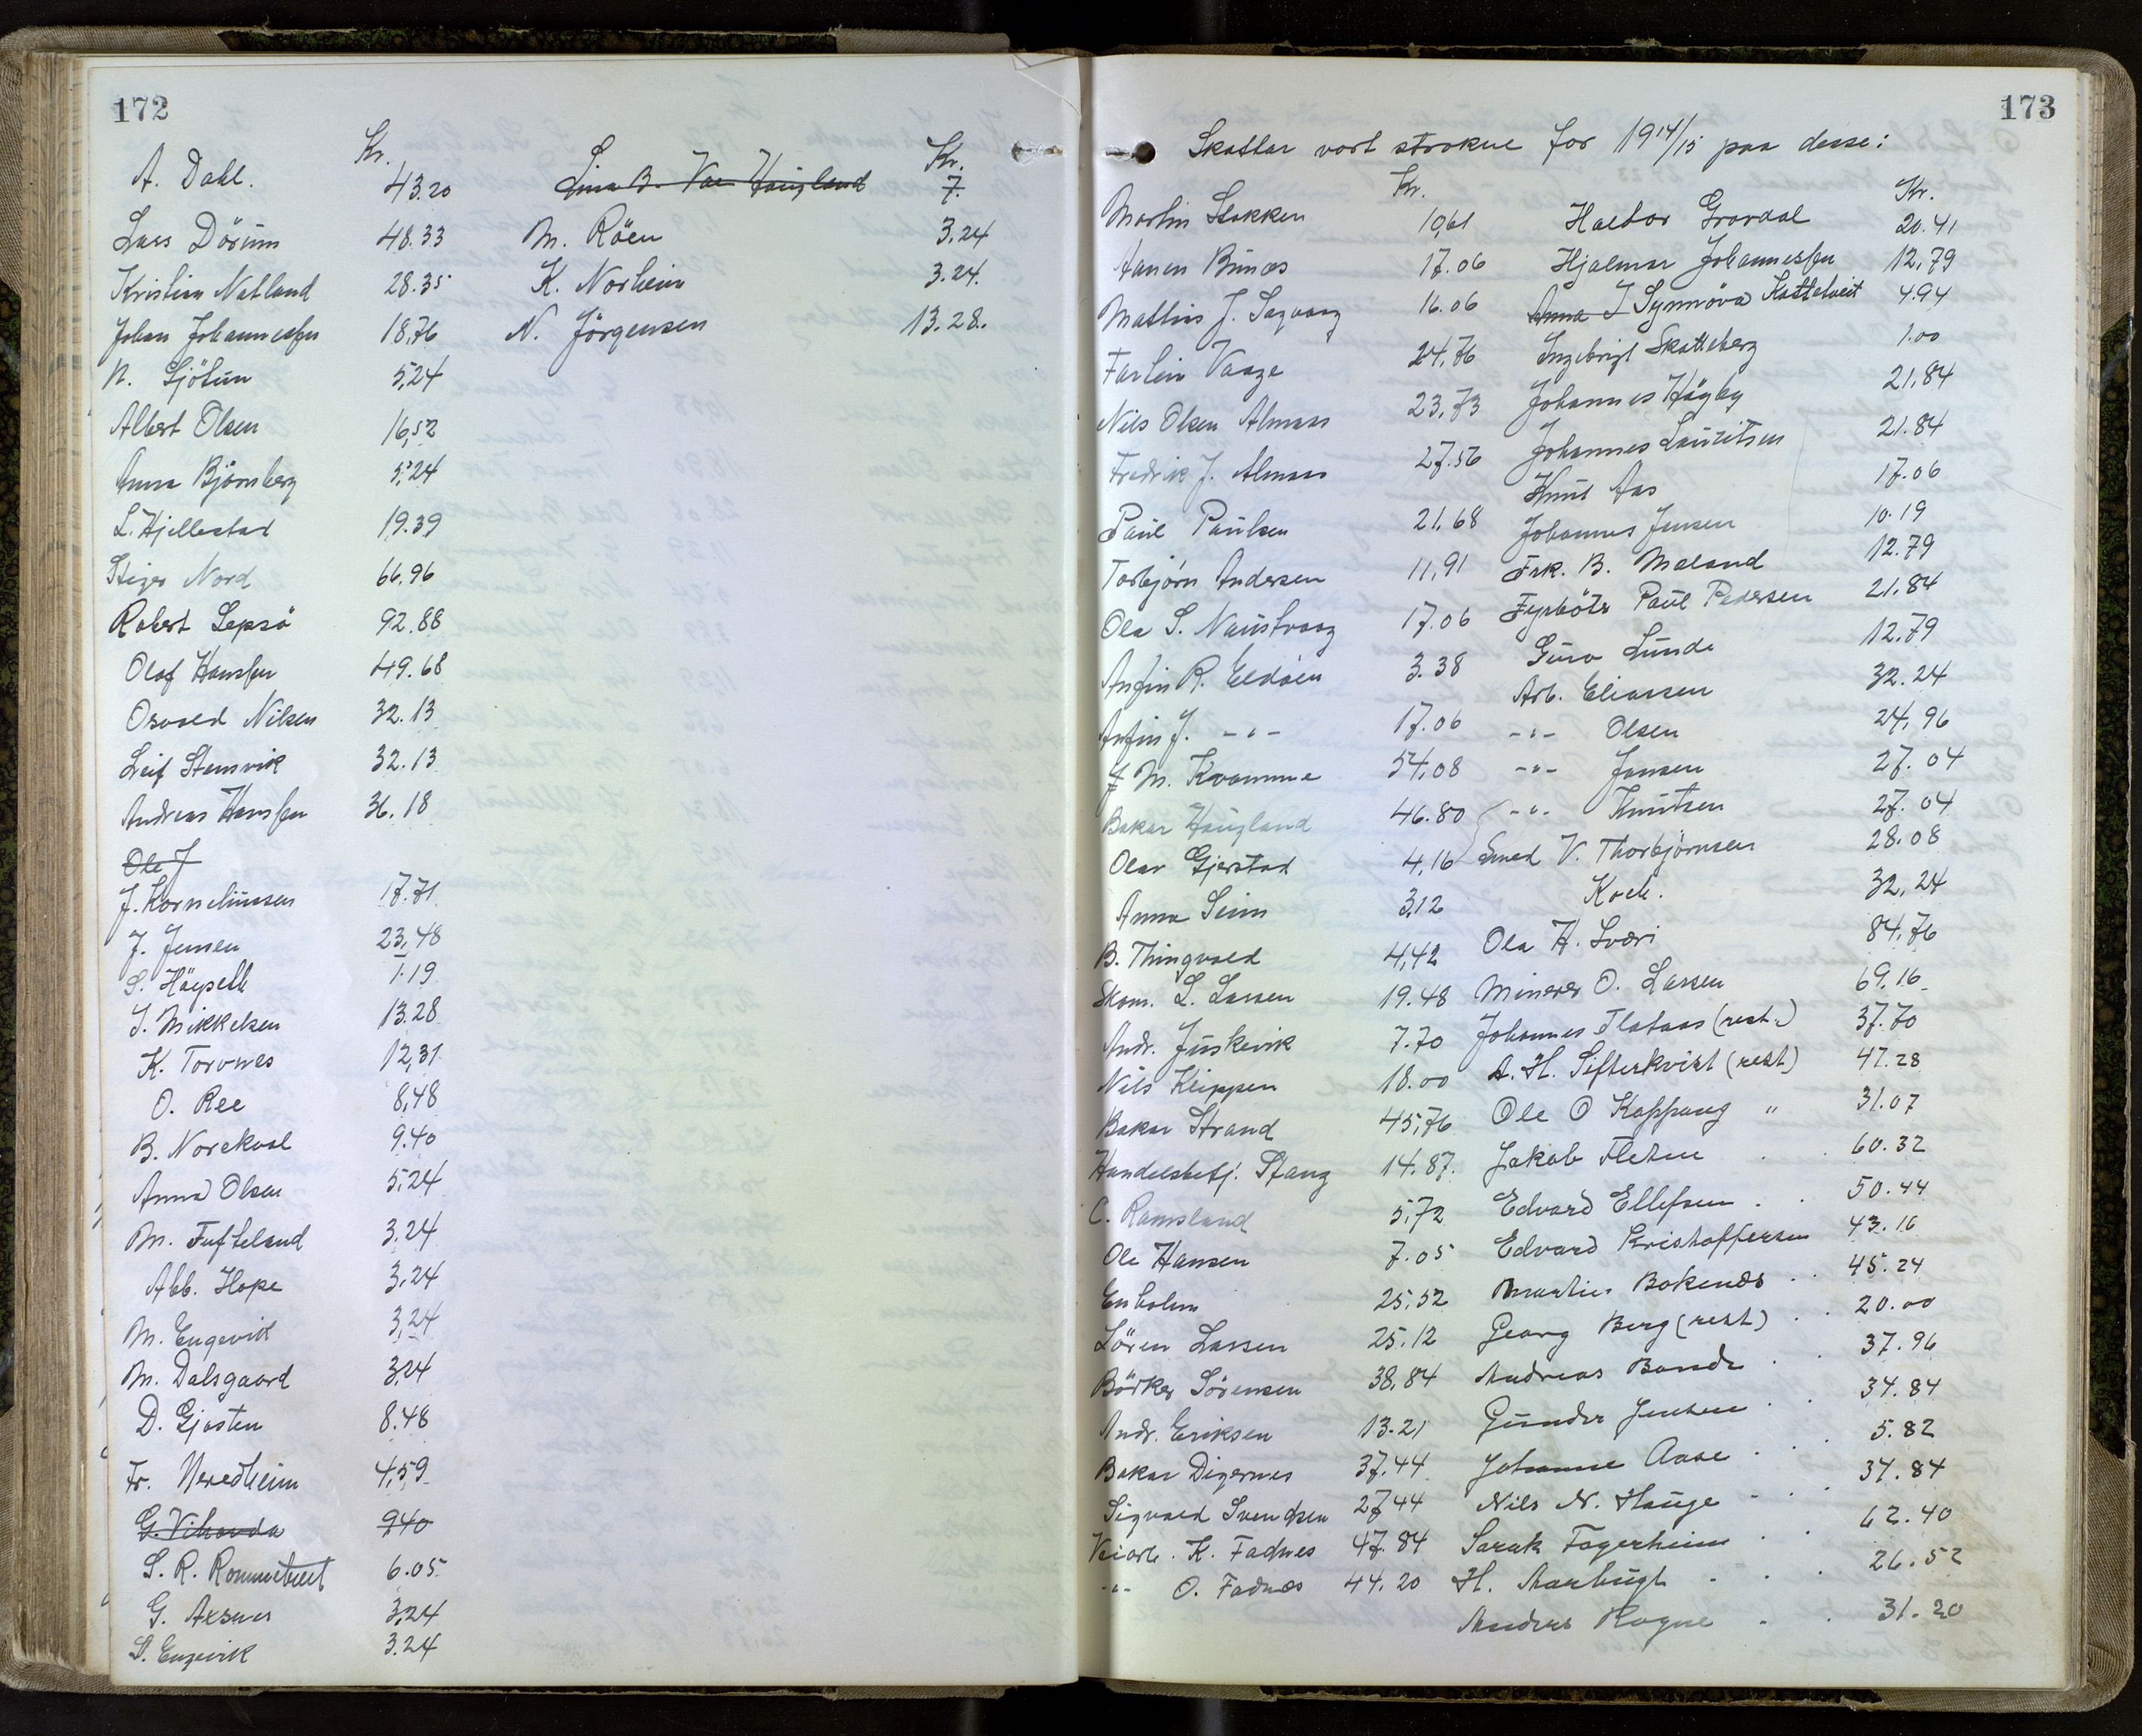 172
Kr.
A. Dahl. 43.20
Lars Dörum 48.33
Kristian Natland 28.35
Johan Johannessen 18,76
N. Sjötun 5,24
Albert Olsen 16,52
Anna Björnberg 5,24
L. Hjellestad 19.39
Steiger Nord 66.96
Robert Lepsö 92.88
Olaf Hanssen 49.68
Osvald Nilsen 32.13
Leif Stamvik 32.13
Andreas Hanssen 36.18
Ole J
J. Korneliussen 17.71
J. Jensen 23,48
S. Höyseth 1.19
J. Mikkelsen 13.28
K. Torvnes 12,31
O. Ree 8,48
B. Norekval 9.40
Anna Olsen 5,24
M. Tufteland 3.24
Abb. Hope 3,24
M. Engevik 3,24
M. Dalsgaard 3,24
D. Gjosten 8.48
Fr. Meredheim 4,59
G. 9,40
S. R. Rommetveit 6.05
G. Axsnes 3,24
S. Engevik 3.24
Kr.
Lina B. Haugland 7.
M. Röen 3.24
K. Norheim 3.24.
N. Jörgensen 13.28.
173
Skattar vort strokne for 1914/15 paa desse:
Kr.
Martin Stokken 10,61
Aanen Bunes 17.06
Mattias J. Sagvaag 16.06
Farlein Vaage 24,76
Nils Olsen Almaas 23,73
Fredrik J. Almaas 27.56
Paul Paulsen 21,68
Torbjørn Andersen 11,91
Ola S. Naustvaag 17.06
Anfin R. Eldöen 3.38
Anfin J. -"- 17.06
J M. Kvamme 54,08
Bakar Haugland 46.80
Olav Gjerstad 4,16
Anna Seim 3,12
B. Thingvald 4,42
Skom. L. Larsen 19.48
Andr. Juskevik 7.70
Nils Kleppen 18.00
Bakar Strand 45,76
Handelsbetj. Stang 14.87.
C. Ramsland 5,72
Ole Hansen 7.05
Enholm 25,52
Sören Larsen 25.12
Börker Sörensen 38,84
Andr. Eriksen 13.21
Bakar Digernes 37,44
Sigvald Svendsen 27,44
Veiarb. K. Fadnes 47.84
-"- O. Fadnes 44.20
Kr.
Halvor Gravdal 20.41
Hjalmar Johannessen 12,79
Anna I Synnöva Kattetveit 4.94
Ingebrigt Skatteberg 1.00
Johannes Högby 21,84
Johannes Lauritsen 21.84
Knut Aas 17.06
Johannes Jensen 10.19
Frk. B. Mæland 12.79
Fyrböter Paul Pedersen 21,84
Guro Lunde 12,79
Arb. Eliassen 32.24
-"- Olsen 24,96
-"- Jansen 27.04
-"- Knutsen 27.04
Smed V. Thorbjörnsen 28.08
Koch. 32,24
Ola H. Sværi 84,76
Minerer O. Larsen 69,16
Johannes Flataas (rest.) 37.70
A. H. Sifterkvist (rest) 47.28
Ole O Kappang " 31.07
Jakob Fleten 60.32
Edvard Ellefsen 50.44
Edvard Kristoffersen 43.16
Martin Bokenæs 45.24
Georg Berg (rest) 20.00
Andreas Bonde 37.96
Gunder Jensen 34.84
Johanne Aase 5.82
Nils N. Hauge 34.84
Sarah Fagerheim 62.40
H. 26.52
Anders Rogne 31.20